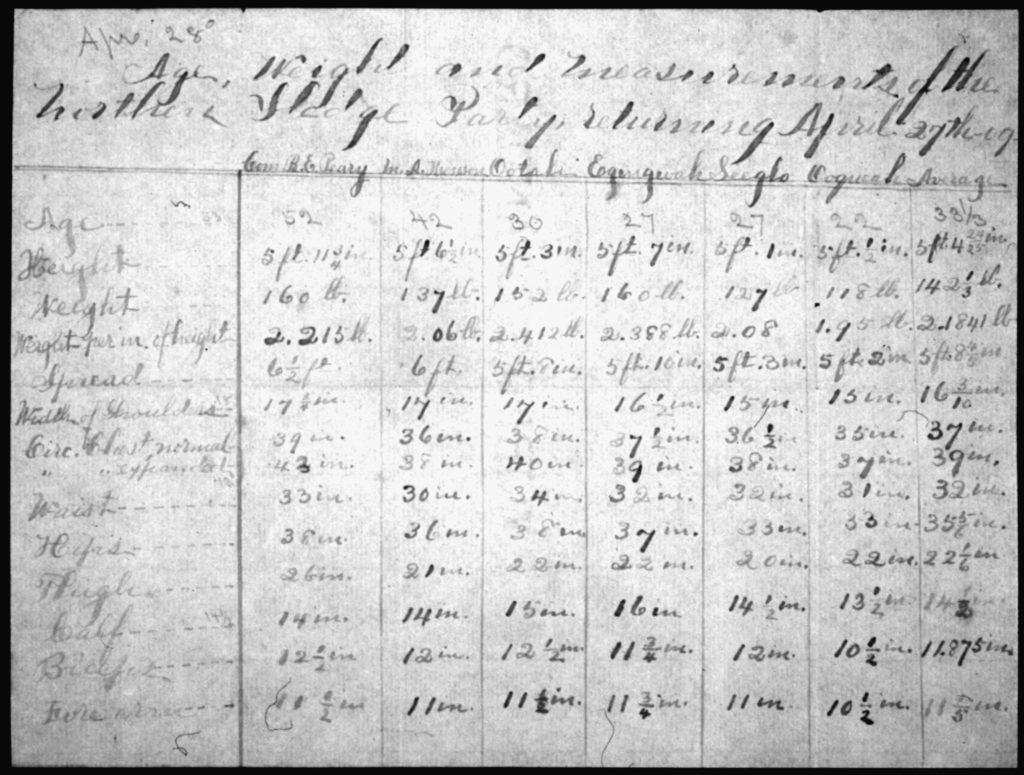 Apr. 28
Age, Weight and Measurements of the
Northern Sledge Party, returning April 27th-09
Com. R. E. Peary M. A. Henson Ootah Egingwah Seeglo Ooqueah Average
Age 52 42 30 27 27 22 33 1/3
Height 5ft. 11 3/4 in 5ft 6 1/2 in 5ft. 3in. 5ft. 7in. 5ft. 1in. 5ft. 1/2 in. 5ft. 4 in.
Weight 160 lb. 137 lb. 152 lb. 160 lb. 127 lb 118 lb. 142 1/3 lb.
Weight per in. of height 2.215 lb. 2.06 lb. 2.412 lb. 2.388 lb. 2.08 1.95 lb. 2.1841 lb
Spread 6 1/2 ft 6 ft. 5ft. 8in. 5ft. 10in. 5ft. 3in. 5ft. 2in 5ft. 8 4/5 in
Width of Shoulders 17 in. 17 in. 17 in. 16 1/2 in. 15 in. 15 in. 16 3/10 in.
Circ. Chest normal 39 in. 36 in. 38 in. 37 1/2 in. 36 1/2 in 35 in. 37 in.
" " expanded 43 in. 38 in. 40 in. 39 in. 38 in. 37 in. 39 in.
Waist 33 in. 30 in. 34 in. 32 in. 32 in. 31 in. 32 in.
Hips 38 in. 36 in. 38 in. 37 in. 33 in. 33 in. 35 5/6 in.
Thigh 26 in. 21 in. 22 in. 22 in. 20 in. 22 in. 22 1/6 in
Calf 14 in. 14 in. 15 in. 16 in 14 1/2 in. 13 1/2 in 14 1/2 in
Biceps 12 1/2 in 12 in. 12 1/2 in. 11 3/4 in. 12 in. 10 1/2 in. 11.875 in.
Fore arm 11 1/2 in 11 in. 11 1/2 in. 11 3/4 in. 11 in. 10 1/2 in. 11 in.